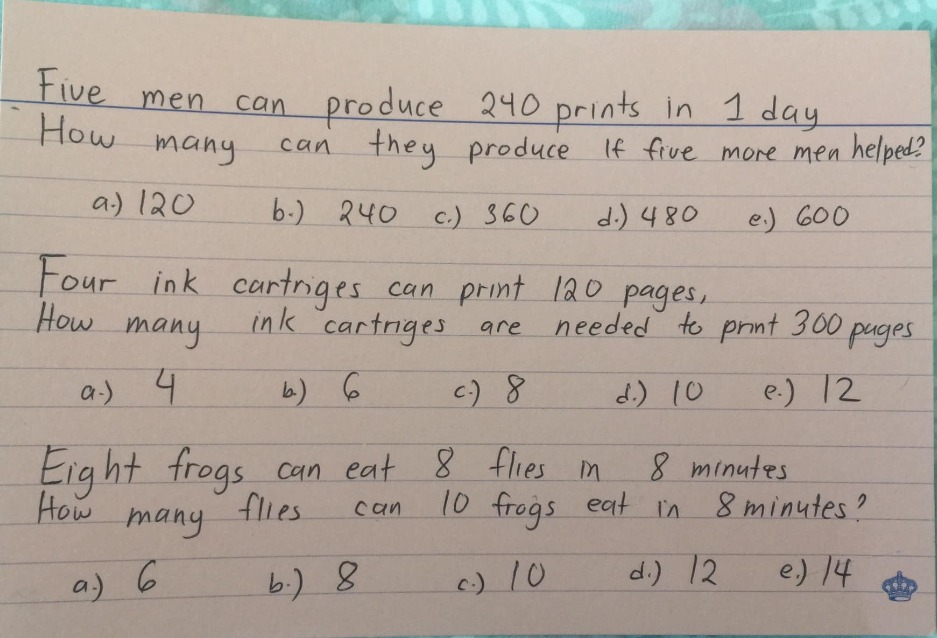 Five men can produce 240 prints in 1 day
How many can they produce If five more men helped?
a.) 120 b.) 240 c.) 360 d.) 480 e.) 600
Four ink cartriges can print 120 pages,
How many ink cartriges are needed to print 300 pages
a.) 4 b.) 6 c.) 8 d.) 10 e.) 12
Eight frogs can eat 8 flies in 8 minutes
How many flies can 10 frogs eat in 8 minutes?
a.) 6 b.) 8 c.) 10 d.) 12 e.) 14